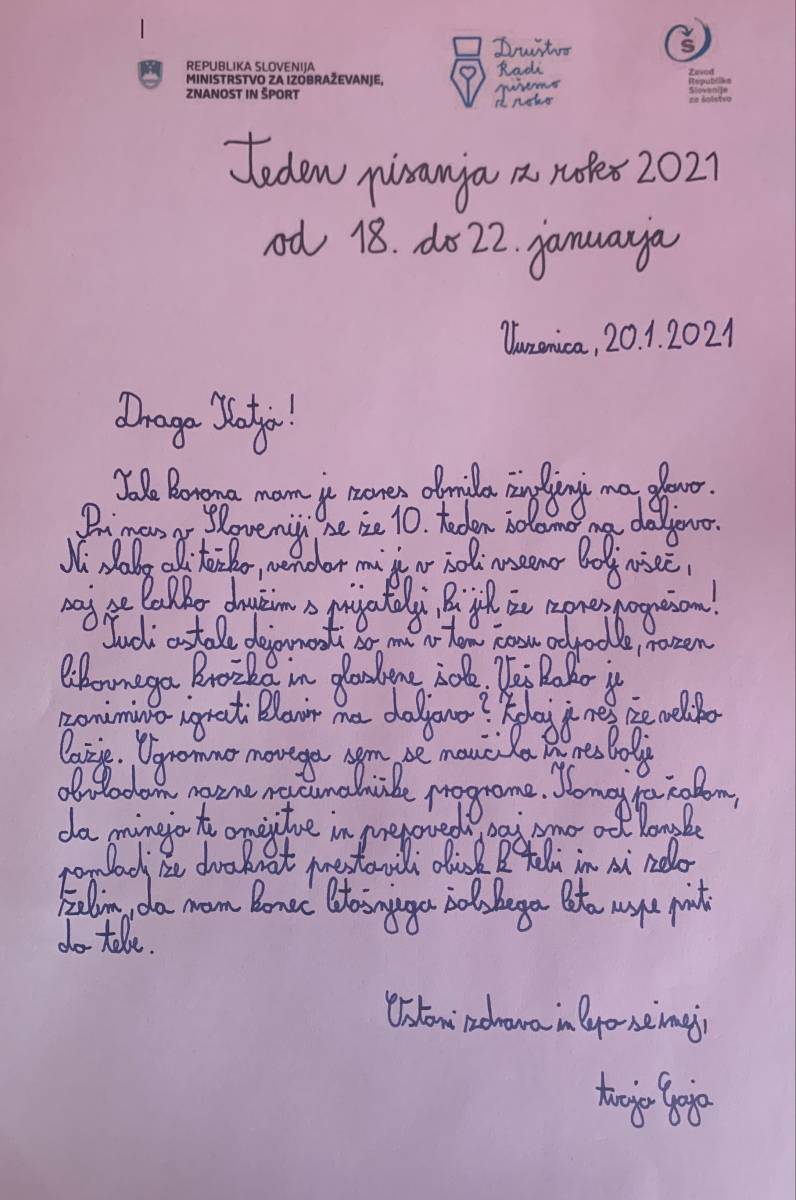 REPUBLIKA SLOVENIJA
MINISTRSTVO ZA IZOBRAŽEVANJE,
ZNANOST IN ŠPORT
Društvo
Radi
pišemo
z roko
Š
Zavod
Republike
Slovenije
za šolstvo
Teden pisanja z roko 2021
od 18. do 22. januarja
Vuzenica, 20.1.2021
Draga Katja!
Tale korona nam je zares obrnila življenji na glavo.
Pri nas v Sloveniji se že 10. teden šolamo na daljavo.
Ni slabo ali težko, vendar mi je v šoli vseeno bolj všeč,
saj se lahko družim s prijatelji, ki jih že zares pogrešam!
Tudi ostale dejavnosti so mi v tem času odpadle, razen
likovnega krožka in glasbene šole. Veš kako je
zanimivo igrati klavir na daljavo? Zdaj je res že veliko
lažje. Ogromno novega sem se naučila in res bolje
obvladam razne računalniške programe. Komaj pa čakam,
da minejo te omejitve in prepovedi, saj smo od lanske
pomladi že dvakrat prestavili obisk k tebi in si zelo
želim, da nam konec letošnjega šolskega leta uspe priti
do tebe.
Ostani zdrava in lepo se imej,
tvoja Gaja